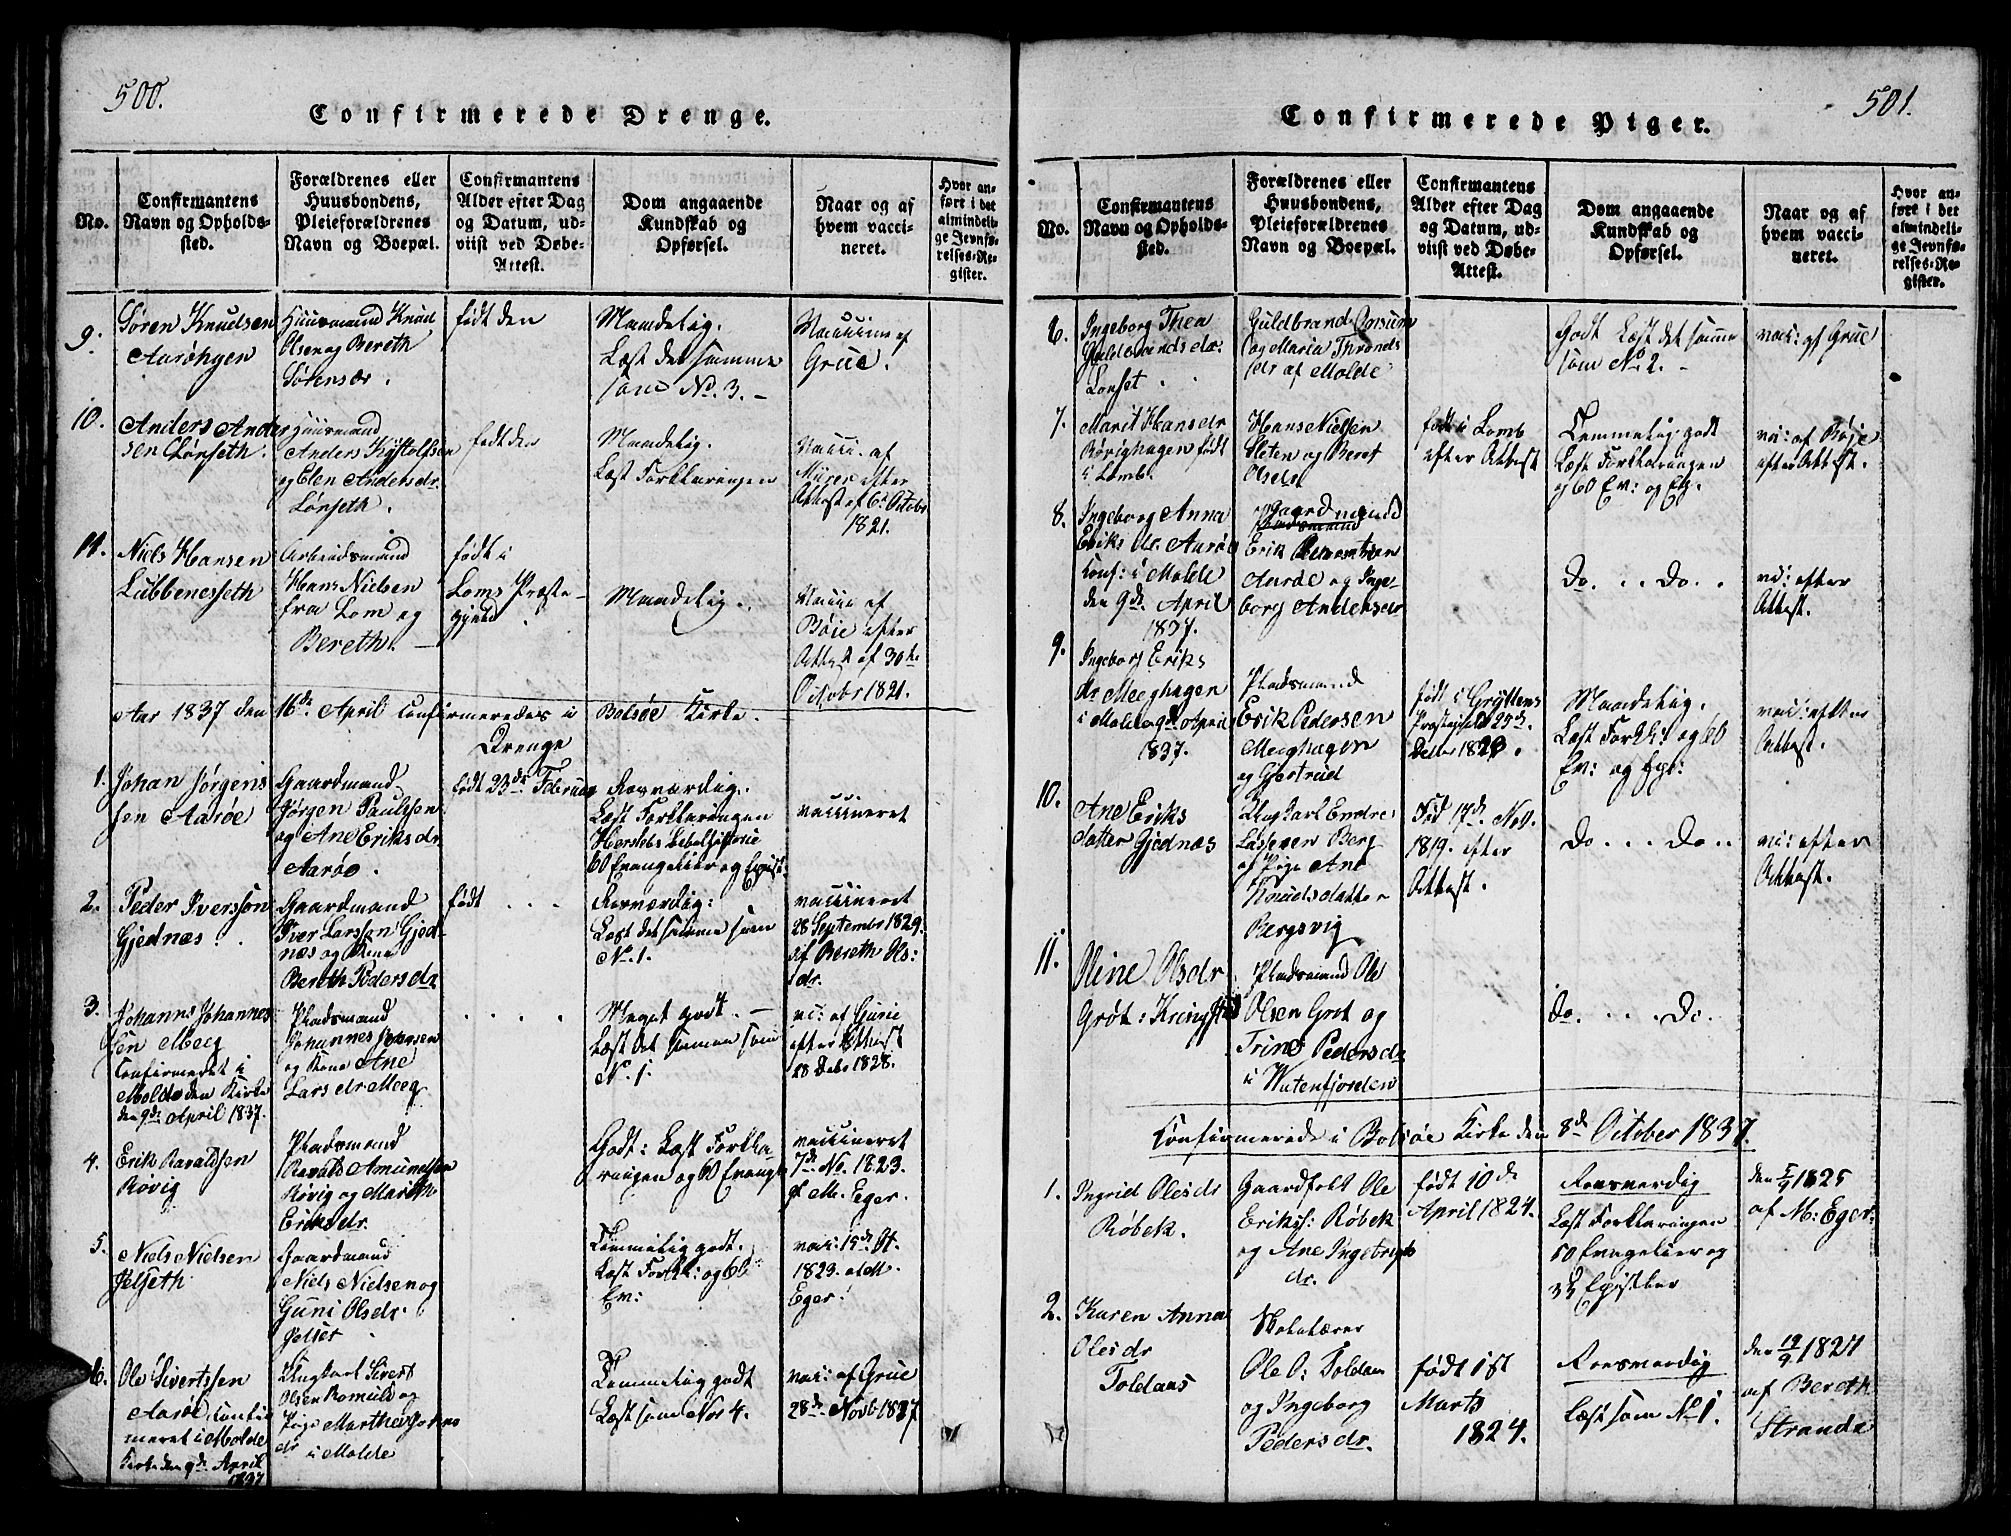 500.
Confirmerede Drenge.
No.
Confirmantens
Navn og Opholds-
sted.
Forældrenes eller
Huusbondens,
Pleieforældrenes
Navn og Boepæl.
Confirmantens
Alder efter Dag
og Datum, ud-
viist ved Døbe-
Attest.
Dom angaaende
Kundskab og
Opførsel.
Naar og af
hvem vacci-
neret.
Hvor an-
ført i det
almindeli-
ge Jevnfø-
relses-Re-
gister.
9.
Søren Knudsen
Aarøhgen
Huusmand Knud
Olsen og Bereth
Sørensdr.
født den
Maadelig.
Læst det samme
som No. 3. -
Vaccine af
Grue.
10.
Anders Ander
sen Lønseth.
Huusmand
Anders Kristofsen
og Elen Andersdr.
Lønseth.
født den
Maadelig.
Læst Forklaringen
Vacci: af
efter
Attest af 6. Octobr
1821.
11.
Niels Hansen
Lubbenesseth
Arbeidsmand
Hans Nielsen
fra Lom og
Bereth. -
født i
Loms Præste-
gjeld
Maadelig.
Vacci af
Böje efter
Attest af 30te
Octobr 1821.
Aar 1837 den 16de April Confirmeredes i Bolsøe Kirke.
Drenge
1.
Johan Jørgens
sen Aarøe
Gaardmand
Jørgen Paulsen
og Ane Eriksdr.
Aarøe.
født 23de Februar
Roesværdig.
Læst Forklaringen
Herslebs Bibelhistorie
60 Evangelier og Epist.
vaccineret
2.
Peder Iversson
Gjednæs.
Gaardmand
Iver Larssen Gjed-
næs og Kone
Bereth Pedersdr
født . . .
Roesværdig:
Læst det samme som
No. 1.
vaccineret
28 Septembr 1829.
af Bereth Ols:
dr.
3.
Johanns Johannes
sen Meeg
Confirmeret i
Molde den Kirke
den 9de April 1837.
Pladsmand
Johannes Johansen
og Kone Ane
Larsdr Meeg
. . . .
Meget godt. -
Læst det samme som
No. 1.
vc: af Guni
efter Attest
28 Debr 1828.
4.
Erik Ravaldsen
Røvig
Pladsmand
Ravald Amundsen
Røvig og Marith
Eriksdr.
Godt: Læst Forkla-
ringen og 60 Evangl
vaccineret
7de No. 1823.
af M. Eger.
5.
Niels Nielsen
Jelseth
Gaardmand
Niels Nielsen og
Guni Olsdr.
Jelset
Temmelig godt.
Læst Forkl: og 60
Ev:
vac: 15de
1823. af M.
Eger.
6.
Ole Sivertssen
Aarøe. Confir
meret i Molde
Kirke den 9de April
1837
Ungkarl Sivert
Olsen Romuld og
Pige Marthe Johns
dr
i Molde
Temmelig godt
Læst som No. 4.
vac: af Grue
28de Novb 1827
501.
Confirmerede Piger.
No.
Confirmantens
Navn og Opholds-
sted.
Forældrenes eller
Huusbondens,
Pleieforældrenes
Navn og Boepæl.
Confirmantens
Alder efter Dag
og Datum, ud-
viist ved Døbe-
Attest.
Dom angaaende
Kundskab og
Opførsel.
Naar og af
hvem vacci-
neret.
Hvor an-
føre i det
almindeli-
ge Jevnfø-
relses-Re-
gister.
6.
Ingeborg Thea
Guldbrandsdr.
Lonset
Guldbrand Onsum
og Maria Thronds
dr af Molde
Godt Læst det samme
som No 2. -
vac: af Grue
7.
Marit Hansdr
Rørighagen født
i Lomb.
Hans Nielsen
Sleten og Beret
Olsdr
født i Lomb
efter Attest
Temmelig godt
Læst Forklaringen
og 60 Ev: og Ep.
vac: af Böje
efter Attest.
8.
Ingeborg Anna
Eriks dr. Aarøe
Conf: i Molde
den 9de April
1837.
Gaardmand
Erik
Aarøe og Inge-
borg Andersdr
Do. . . Do. .
vc: efter
Attest.
9.
Ingeborg Eriks
dr Meeghagen
i Molde 9de April
1837.
Pladsmand
Erik Pedersen
Meeghagen
og Gjertrud
født i Gryttens
Præstegjeld 25de
Debr 1823.
Maadelig.
Læst Forkl: og 60
Ev: og Epi:
vac: efter
Attest.
10.
Ane Eriks
datter Gjednæs
Ungkarl Endre
Lassesen Berg
af Pige Ane
Knudsdatter
Bergsvig
Fød 17de Nov.
1819. efter
Attest.
Do . . . Do . .
vc: efter
Attest.
11.
Oline Olsdr
Grøt: Kringsted
Pladsmand Ole
Olsen Grøt og
Trine Pedersdr
i Watenfjorden
Do. . . . Do.
Confirmerede i Bolsøe Kirke den 8de October 1837.
1.
Ingrid Olesdr
Røbek.
Gaardfolk Ole
Eriks: Røbek
og Ane Ingebrigts
dr.
født 10de
April 1824.
Roesværdig
Læst Forklaringen
50 Evangelier og
Epistler
den 5/9 1825
af M: Eger.
2.
Karen Anna
Olesdr
Toldaas
Skolelærer
Ole O: Toldaas
og Ingeborg
Pedersdr.
født 1st
Marts
1824.
Roesværdig
Læst som No 1.
den 19/9 1827
af Bereth
Strande